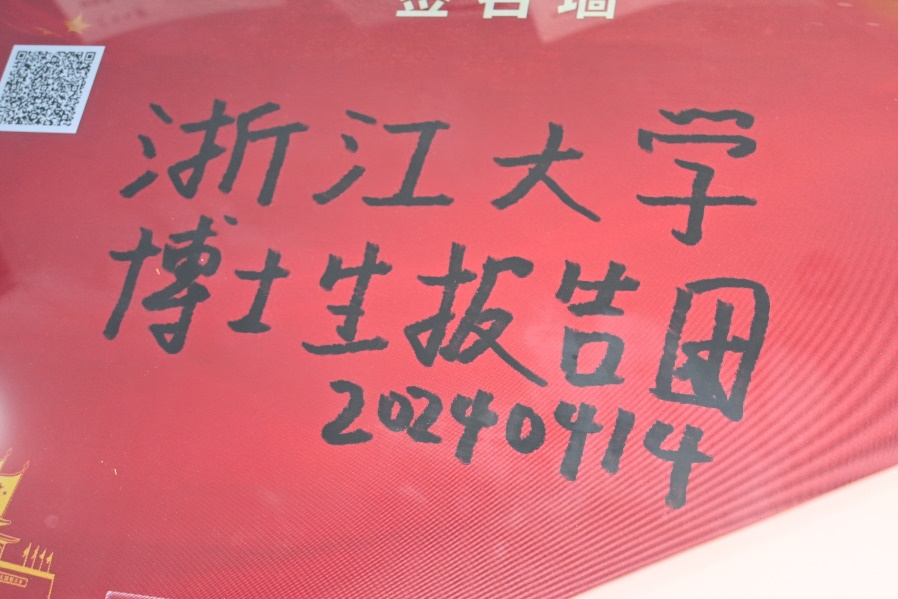 签名墙
浙江大学
博士生报告团
20240414